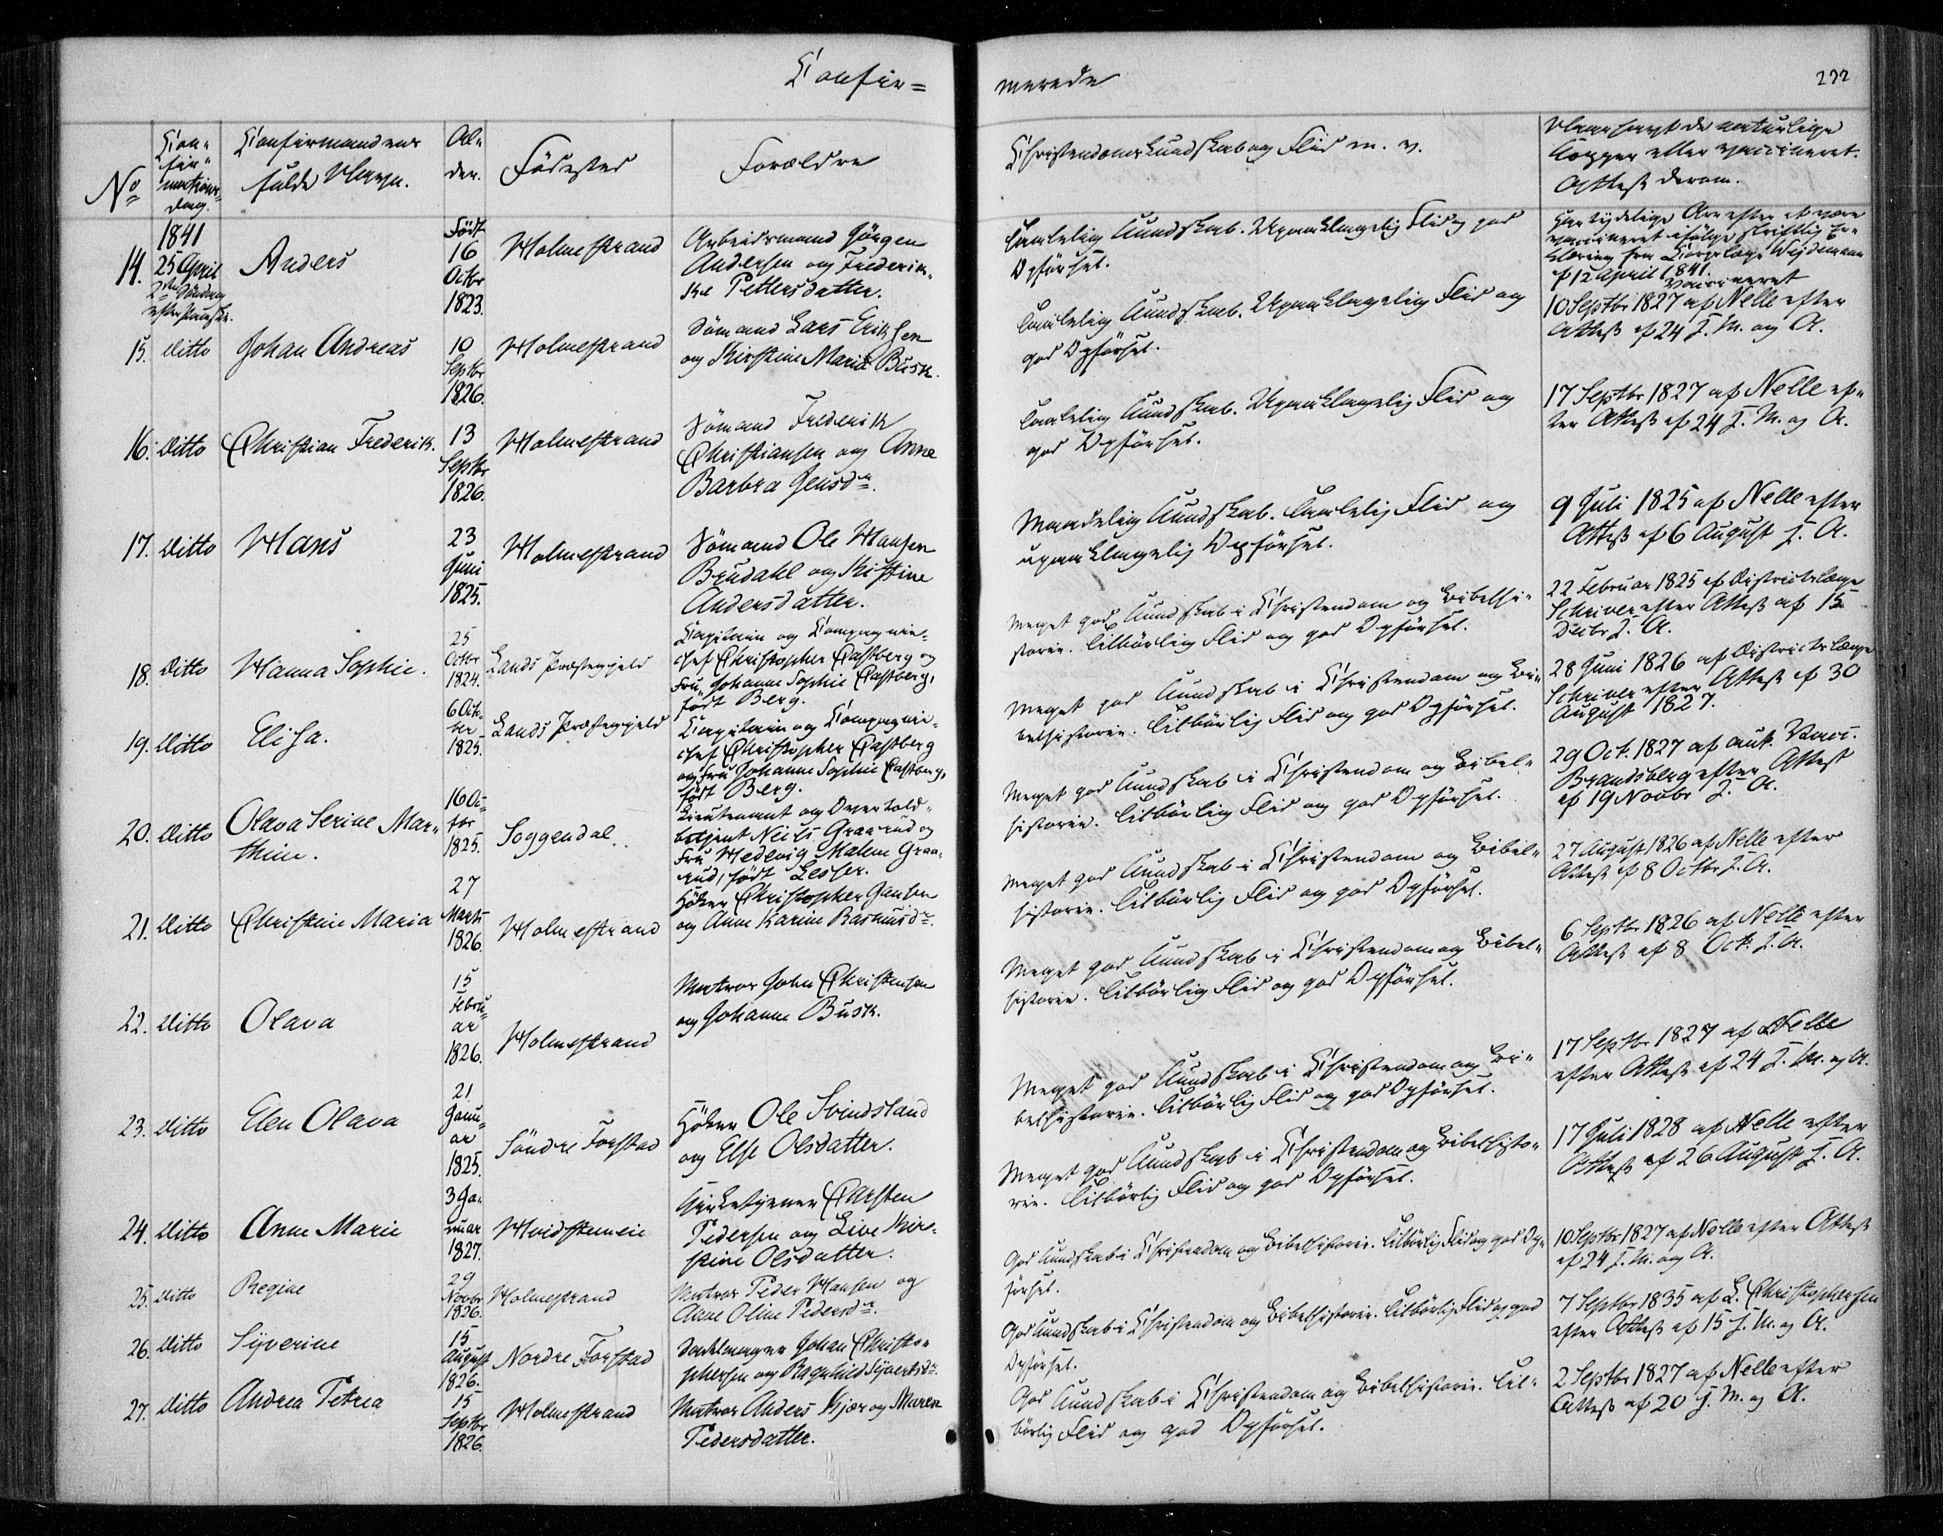 Confir=
merede
232
No
Con-
fir-
mations-
dag.
Confirmandens
fulde Navn.
Al-
der.
Födested
Forældre
Christendomskundskab og Flid m. v.
naar havt de naturlige
Kopper eller vaccineret.
Attest derom.
1841
14. 25 April
2den Söndag
efter Paaske.
Anders
Födt
16
Octbr
1823.
Holmestrand
Arbeidsmand Jörgen
Andersen og Frederik-
ke Pettersdatter.
Taalelig Kundskab. Upaaklagelig Flid og god
Opförsel.
Har tydelige Ar efter at være
vaccineret ifölge skriftlig Er-
klæring fra Corpslæge Wejdemann
af 12 April 1841.
15. Ditto
Johan Andreas
10
Septbr
1826.
Holmestrand
Sömand Lars Eriksen
og Kirstine Maria Busk.
Taalelig Kundskab. Upaaklagelig Flid og
god Opförsel.
vaccineret
10 Septbr 1827 af Nelle efter
Attest af 24 s. M. og A.
16. Ditto
Christian Frederik.
13
Septbr
1826.
Holmestrand
Sömand Frederik
Christiansen og Anne
Barbra Jensdr.
Taalelig Kundskab. Upaaklagelig Flid og
god Opförsel.
17 Septbr 1827 af Nelle ef-
ter Attest af 24 s. M. og A.
17. Ditto
Hans
23
Juni
1825.
Holmestrand
Sömand Ole Hansen
Brudahl og Kistine
Andersdatter.
Maadelig Kundskab. Taalelig Flid og
upaaklagelig Opförsel.
9 Juli 1825 af Nelle efter
Attest af 6 August s. A.
18. Ditto
Hanna Sophie.
25
Octbr
1824.
Lands Præstegjeld
Capitain og Compagnie-
chef Christopher Castberg og
Fru Johanne Sophie Castberg,
födt Berg.
Meget god Kundskab i Christendom og Bibelhi-
storie. Tilbörlig Flid og god Opförsel.
22 Februar 1825 af Districtslæge
Schriver efter Attest af 15
Decbr s. A.
19. Ditto
Elisa.
6 Oct-
br
1825.
Lands Præstegjeld
Capitain og Compagnie-
chef Christopher Castberg
og Fru Johanne Sophie Castberg,
födt Berg.
Meget god Kundskab i Christendom og Bi-
belhistorie. Tilbörlig Flid og god Opförsel.
28 Juni 1826 af Districtslæge
Schriver efter Attest af 30
August 1827.
20. Ditto
Olava Serine Mar-
thine.
16 Oc-
tbr
1825.
Soggendal.
Lieutenant og Overtold-
betjent Neils Graarud og
Fru Hedevig Malene Graa-
rud, födt Lesser.
Meget god Kundskab i Christendom og Bibel-
historie. Tilbörlig Flid og god Opförsel.
29 Oct. 1827 af aut. Vacc.
Brandsberg efter Attest
af 19 Novbr s. A.
21. Ditto
Christine Maria
27
Marts
1826.
Holmestrand
Höker Christopher Jansen
og Anne Karine Rasmusdr.
Meget god Kundskab i Christendom og Bibel-
historie. Tilbörlig Flid og god Opförsel.
27 August 1826 af Nelle efter
Attest af 8 Octbr s. A.
22. Ditto
Olava
15
Febru-
ar
1826.
Holmestrand
Matros John Christensen
og Johanne Busk.
Meget god Kundskab i Christendom og Bibel-
historie. Tilbörlig Flid og god Opförsel.
6 Septbr 1826 af Nelle efter
Attest af 8 Oct. s. A.
23. Ditto
Elen Olava
21
Janu-
ar
1825.
Söndre Forstad
Höker Ole Svindsland
og Else Olsdatter.
Meget god Kundskab i Christendom og Bi-
belhistorie. Tilbörlig Flid og god Opförsel.
17 Septbr 1827 af Nelle
efter Attest af 24 s. M. og A.
24. Ditto
Anne Marie
3 Ja-
nuar
1827.
Hvidsteneie
Kirketjener Carsten
Pedersen og Live Kir-
stine Olsdatter.
Meget god Kundskab i Christendom og Bibelhisto-
rie. Tilbörlig Flid og god Opförsel.
17 Juli 1828 af Nelle efter
Attest af 26 August s. A.
25. Ditto
Regine
29
Novbr
1826.
Holmestrand
Matros Peder Hansen og
Anne Oline Pedersdr.
God Kundskab i Christendom og Bibelhistorie. Tilbörlig Flid og god Op-
försel.
10 Septbr 1827 af Nelle efter Attest
af 24 s. M. og A.
26. Ditto
Syverine
15
August
1826.
Nordre Forstad
Sadelmager Johan Christo-
phersen og Ragnhild Syvertsdr.
God Kundskab i Christendom og Bibelhistorie. Tilbörlig Flid og god
Opförsel.
7 Septbr 1835 af L. Christophersen
efter Attest af 15 s. M. og A.
27. Ditto
Andrea Petrea
15
Septbr
1826.
Holmestrand
Matros Anders Kjær og Maren
Pedersdatter.
God Kundskab i Christendom og Bibelhistorie. Til-
börlig Flid og god Opförsel.
2 Septbr 1827 af Nelle efter
Attest af 20 s. M. og A.